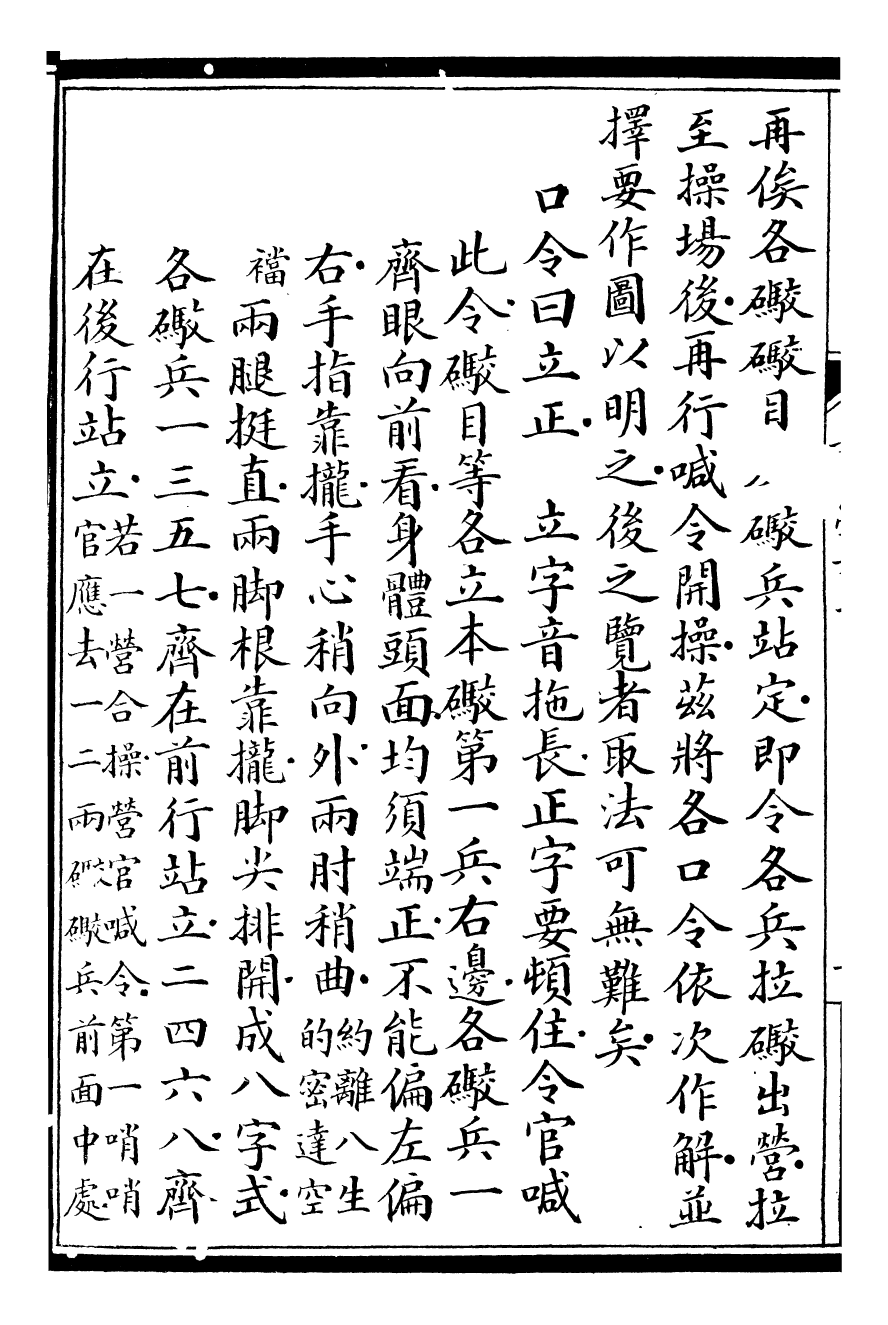 再俟各礮礮目礮兵站定即令各兵拉礮出營拉
至操場後再行喊令開操茲將各口令依次作解並
擇要作圖以明之後之覽者取法可無難矣
口令曰立正　立字音拖長正字要頓住令官喊
此令礮目等各立本礮第一兵右邊各礮兵一
齊眼向前看身體頭面均須端正不能偏左偏
右手指靠攏手心稍向外兩肘稍曲約離八生
的密達空
襠兩腿挺直兩脚根靠攏脚尖排開成八字式
各礮兵一三五七齊在前行站立二四六八齊
在後行站立若一營合操營官喊令第一哨哨
官應去一二兩礮礮兵前面中處